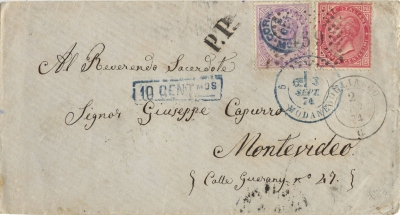 P.P.
459
Al Reverendo Sacerdote
10 CENTMOS
5
3
SEPT
74
MODANE
2
Signor Giuseppe Capurro
Montevideo
{ Calle Guarany nº 47. }